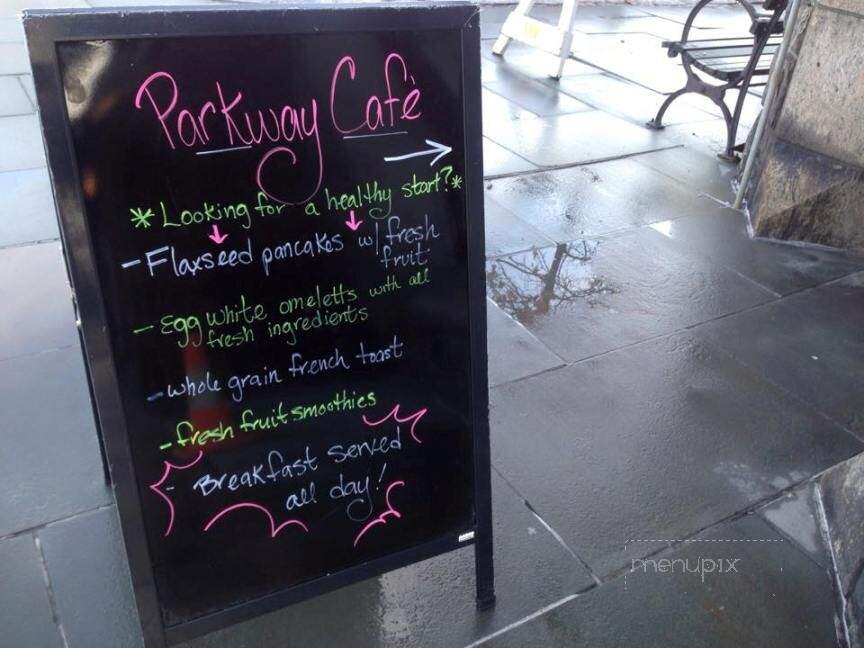 Parkway Café
*Looking for a healthy start?*
- Flaxseed pancakes w/ fresh
fruit
- Egg white omeletts with all
fresh ingredients
- whole grain french toast
- fresh fruit smoothies
- Breakfast served
all day!
menupix